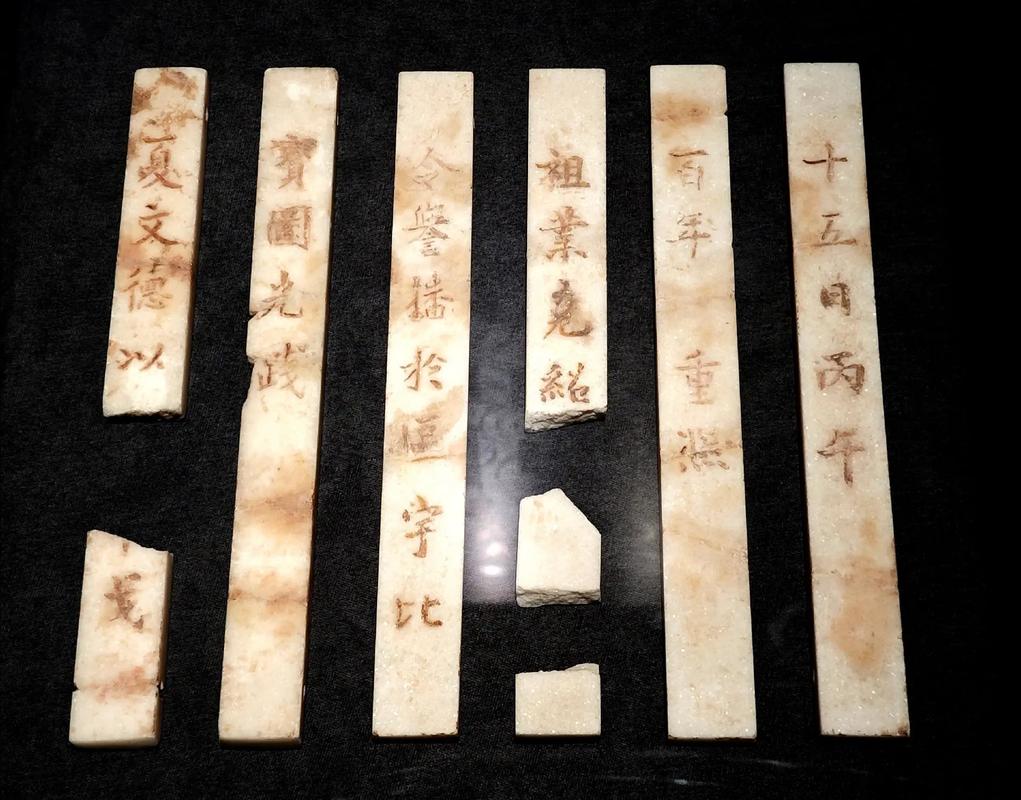 十五日丙午
百年重熙
祖業克紹
令譽播於區宇比
寶圖光踐
夏文德以
戈